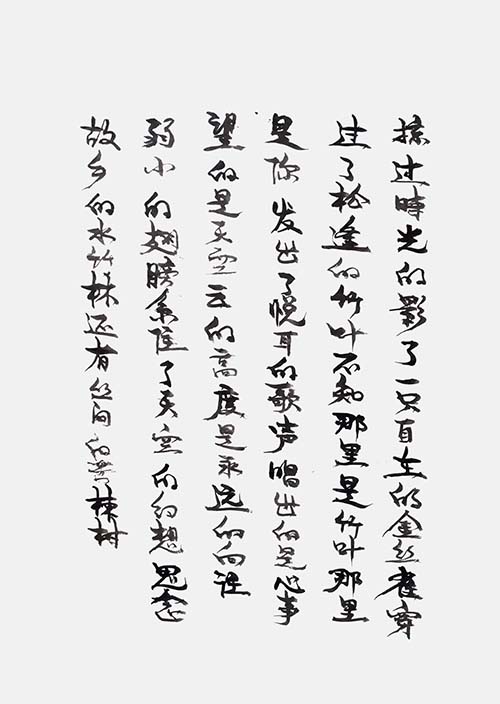 掠过時光的影了一只自在的金丝雀穿
过了松逢的竹叶不知那里是竹叶那里
是你发出了悦耳的歌声唱出的是心事
望的是天空云的高度是永远的向往
弱小的翅膀系了天空的幻想思念
故乡的水竹林还有丛间的苦楝树